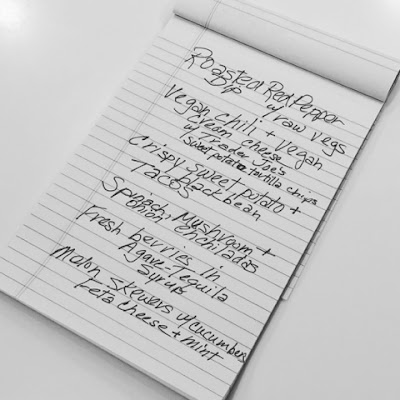 Roasted Red Pepper
Dip w/ raw vegs
Vegan Chili + Vegan
Cream Cheese
w/ Trader Joe's
Sweet potato tortilla chips
Crispy Sweet potato +
Black bean
Tacos
Spinach, Mushroom +
onion enchiladas
Fresh berries in
Agave-Tequila
Syrup
Melon Skewers w/ cucumbers
Feta Cheese + mint